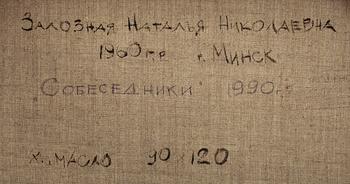 Залозная Наталья Николаевна
1960 г.р г. Минск
Собеседники 1990 г.
х., масло 90 x 120